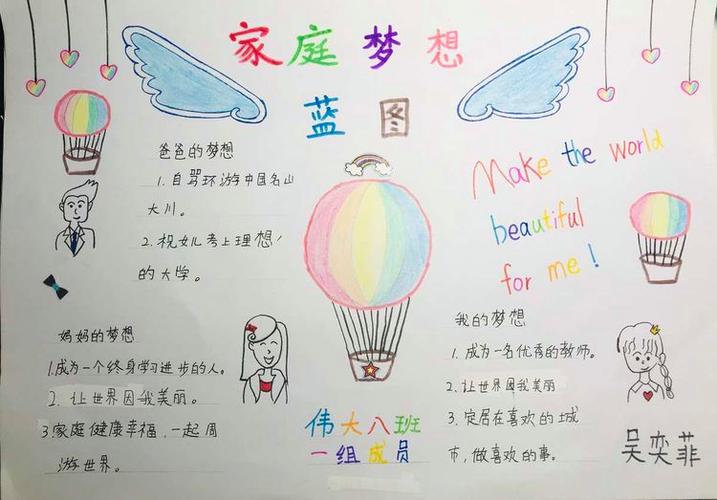 家庭梦想
蓝图
爸爸的梦想
1. 自驾环游中国名山
大川。
2. 祝女儿考上理想
的大学。
Make the world
beautiful
for me!
妈妈的梦想
1.成为一个终身学习进步的人。
2. 让世界因我美丽。
3.家庭健康幸福,一起周
游世界。
我的梦想
1. 成为一名优秀的教师。
2. 让世界因我美丽
3. 定居在喜欢的城
市,做喜欢的事。
伟大八班
一组成员
吴奕菲